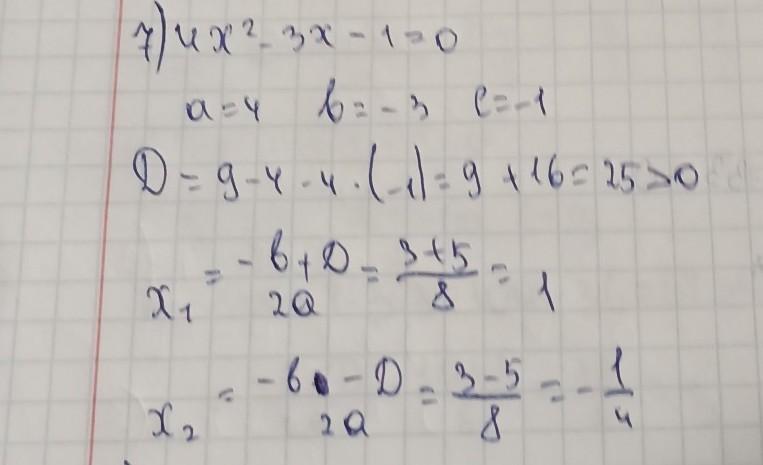 7) 4x² - 3x - 1 = 0
a = 4 b = -3 c = -1
D = 9 - 4 · 4 · (-1) = 9 + 16 = 25 > 0
x₁ = -b + D / 2a = 3 + 5 / 8 = 1
x₂ = -b - D / 2a = 3 - 5 / 8 = - 1 / 4